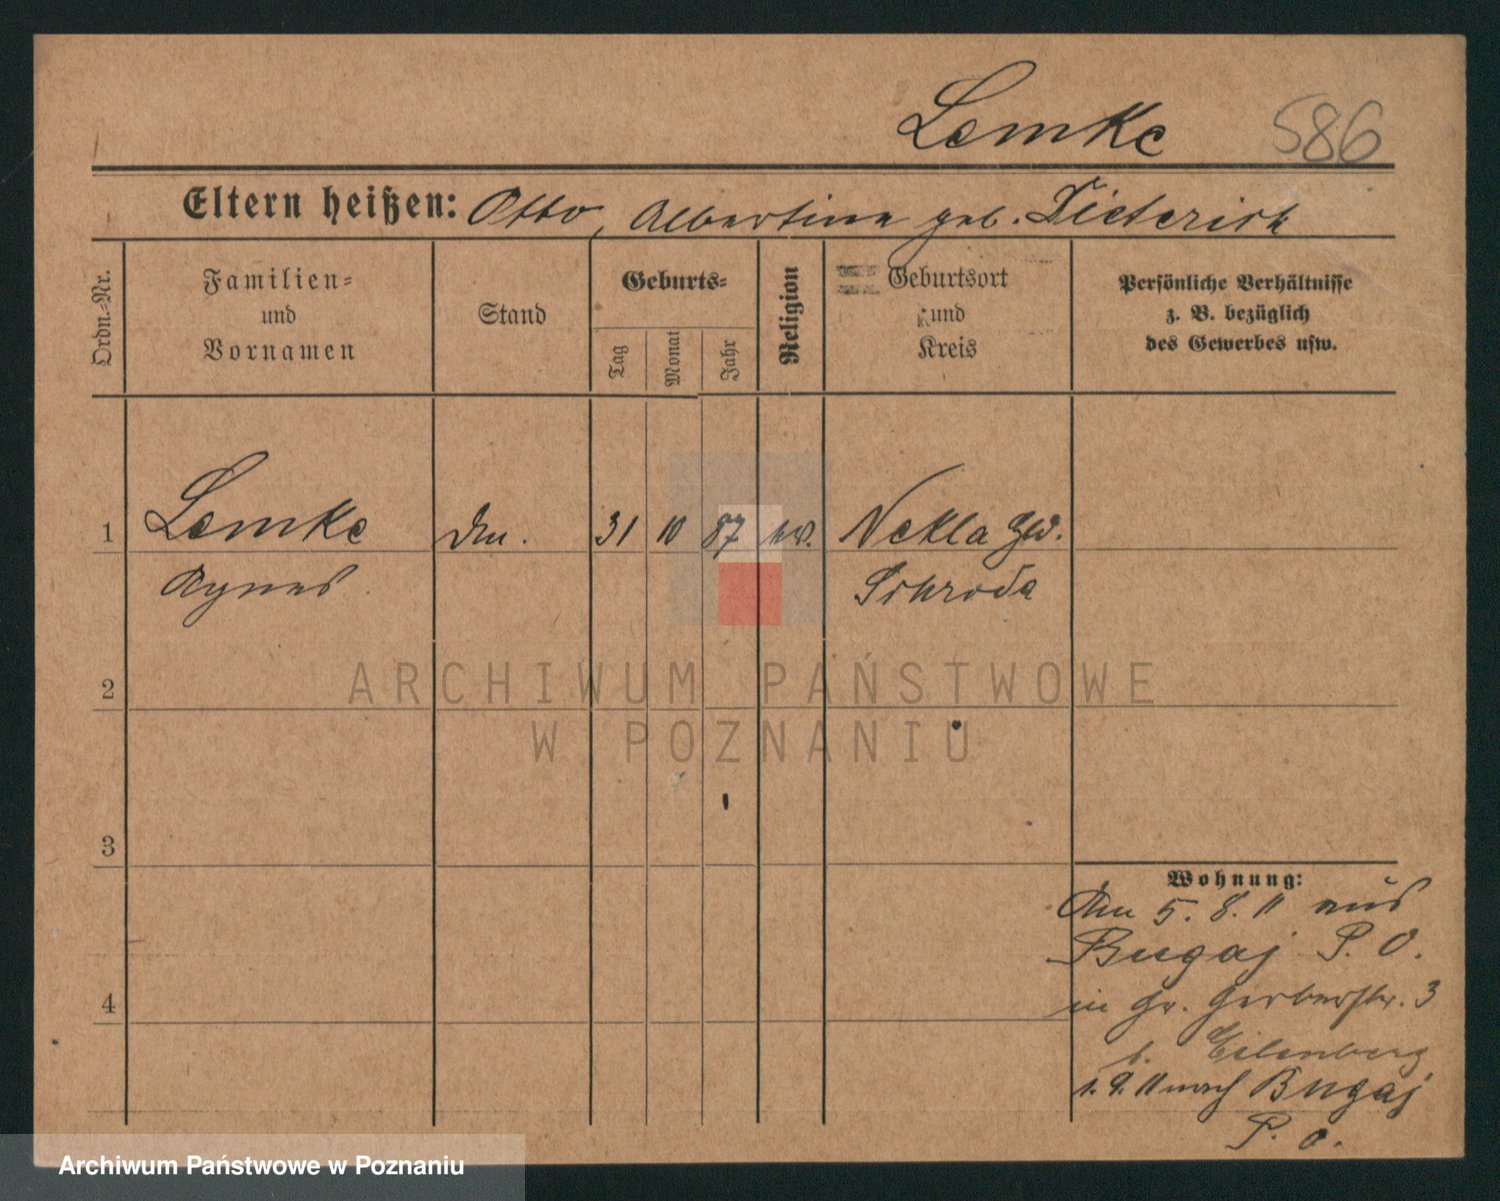 Lemke 586
Eltern heißen: Otto, Albertine geb. Dieterich
Ordn.-Nr.
Familien-
und
Vornamen
Stand
Geburts-
Tag
Monat
Jahr
Religion
Geburtsort
und
Kreis
Persönliche Verhältnisse
z. B. bezüglich
des Gewerbes usw.
1 Lemke 31 10 87 ev. Nekla
Agnes Schroda
2
3
4
Wohnung:
Am 5. 8. 11 aus
Bugaj P. O.
in Gr. Gerberstr. 3
b. Eilenberg
1. 9. 11 nach Bugaj
P. O.
ARCHIWUM PAŃSTWOWE
W POZNANIU
Archiwum Państwowe w Poznaniu